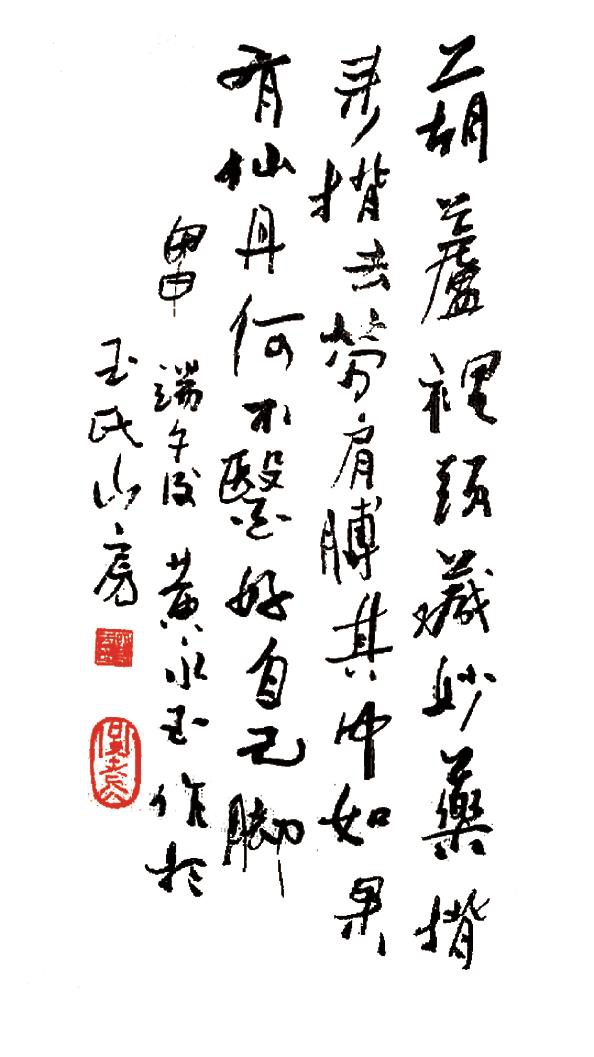 葫蘆裡頭藏妙藥揹
來揹去勞肩膊其中如果
有仙丹何不醫好自己腳
甲申端午後黃永玉作於
玉氏山房